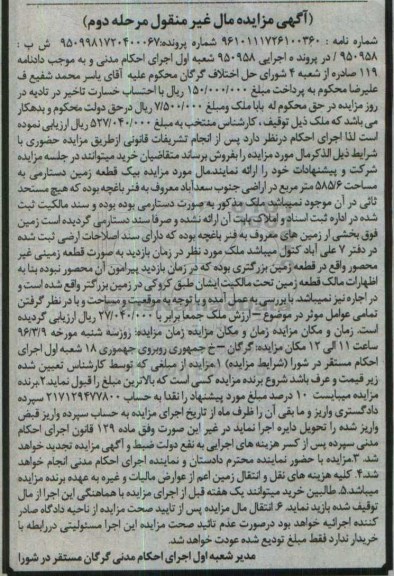 (آگهی مزایده مال غیر منقول مرحله دوم)
شماره نامه : ۹۶۱۰۱۱۱۷۲۶۱۰۰۳۶۰ شماره پرونده:۹۵۰۹۹۸۱۷۲۰۴۰۰۰۶۷ ش ب :
۹۵۰۹۵۸ / در پرونده اجرایی ۹۵۰۹۵۸ شعبه اول اجرای احکام مدنی و به موجب دادنامه
۱۱۹ صادره از شعبه ۴ شورای حل اختلاف گرگان محکوم علیه آقای یاسر محمد شفیع ف
علیرضا محکوم به پرداخت مبلغ ۱۵۰/۰۰۰/۰۰۰ ریال با احتساب خسارت تاخیر در تادیه در
روز مزایده در حق محکوم له بابا ملک ومبلغ ۷/۵۰۰/۰۰۰ ریال درحق دولت محکوم و بدهکار
می باشد که ملک ذیل توقیف ، کارشناس منتخب به مبلغ ۵۲۷/۰۴۰/۰۰۰ ریال ارزیابی نموده
است لذا اجرای احکام درنظر دارد پس از انجام تشریفات قانونی ازطریق مزایده حضوری با
شرایط ذیل الذکرمال مورد مزایده را بفروش برساند متقاضیان خرید میتوانند در جلسه مزایده
شرکت و پیشنهادات خود را ارائه نمایندمال مورد مزایده بیک قطعه زمین دستارمی به
مساحت ۵۸۵/۶ متر مربع در اراضی جنوب سعدآباد معروف به فنر باغچه بوده که هیچ مستحد
ثاتی در آن موجود نمیباشد ملک مذکور به صورت دستارمی بوده بوده و سند مالکیت ثبت
شده در اداره ثبت اسناد و املاک بابت آن ارائه نشده و صرفا سند دستارمی گردیده است زمین
فوق بخشی از زمین های معروف به فنر باغچه بوده که دارای سند اصلاحات ارضی ثبت شده
در دفتر ۷ علی آباد کتول میباشد ملک مورد نظر در زمان بازدید به صورت قطعه زمینی غیر
محصور واقع در قطعه زمین بزرگتری بوده که در زمان بازدید پیرامون آن محصور نبوده بنا به
اظهارات مالک قطعه زمین تحت مالکیت ایشان طبق کروکی در زمین بزرگتر واقع شده است و
در اجاره نیز نمیباشد. با بررسی به عمل آمده و با توجه به موقعیت و مساحت و با در نظر گرفتن
تمامی عوامل موثر در موضوع – ارزش ملک جمعا برابر با ۲۷/۰۴۰/۰۰۰ ریال ارزیابی گردیده
است. زمان و مکان مزایده زمان و مکان مزایده زمان مزایده: روزسه شنبه مورخه ۹۶/۳/۹
ساعت ۱۱ الی ۱۲ مکان مزایده: گرگان – خ جمهوری روبروی جمهوری ۱۸ شعبه اول اجرای
احکام مستقر در شورا (شرایط مزایده) ۱.مزایده از مبلغی که توسط کارشناس تعیین شده
زیر قیمت و عرف باشد شروع برنده مزایده کسی است که بالاترین مبلغ را قبول نماید.۲.برنده
مزایده میبایست ۱۰ درصد مبلغ مورد پیشنهاد را نقدا به حساب ۲۱۷۱۲۹۴۷۷۸۰۰ سپرده
دادگستری واریز و ما بقی آن را ظرف ماه از تاریخ اجرای مزایده به حساب سپرده واریز قبض
واریز شده را تحویل دایره اجرا نماید در غیر این صورت وفق ماده ۱۲۹ قانون اجرای احکام
مدنی سپرده پس از کسر هزینه های اجرایی به نفع دولت ضبط و آگهی مزایده تجدید خواهد
شد. ۳.مزایده با حضور نماینده محترم دادستان و نماینده اجرای احکام مدنی انجام خواهد
شد.۴. کلیه هزینه های نقل و انتقال زمین اعم از عوارض مالیات و غیره به عهده برنده مزایده
میباشد.۵. طالبین خرید میتوانند یک هفته قبل از اجرای مزایده با هماهنگی این اجرا از مال
توقیف شده بازدید نمایند. ۶. انتقال مال مزایده پس از تایید صحت مزایده از ناحیه دادگاه صادر
کننده اجرائیه خواهد بود درصورت عدم تائید صحت مزایده این اجرا مسئولیتی دررابطه با
خریدار ندارد فقط مبلغ تودیع شده عودت خواهد شد.
مدیر شعبه اول اجرای احکام مدنی گرگان مستقر در شورا